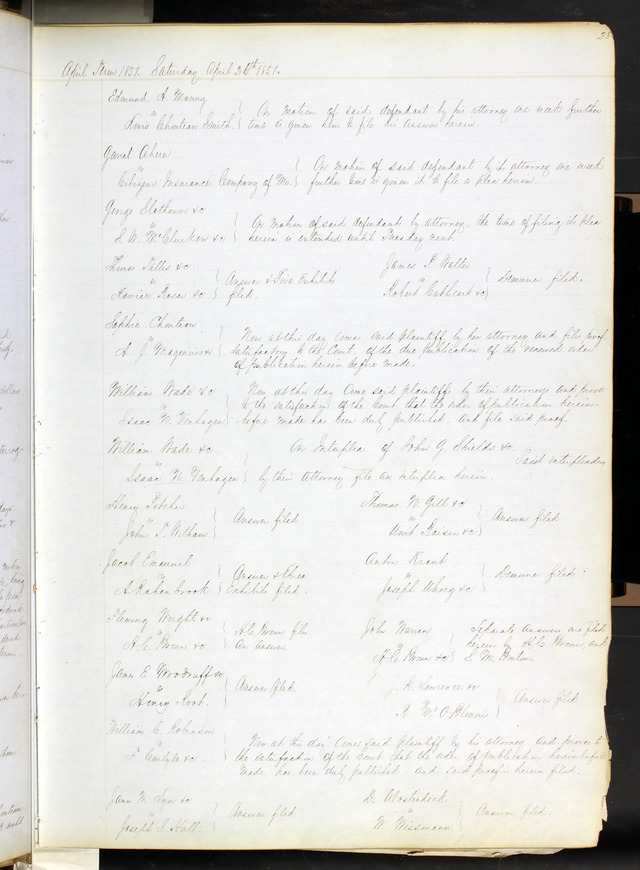 28
April Term 1857. Saturday April 26th 1857.
Edmund A. Manny
" } On motion of said defendant by his attorney one week further
Louis Chouteau Smith. } time is given him to file his answer herein.
Garret Ahern
" } On motion of said defendant by its attorney one week
Citizens Insurance Company of Mo. } further time is given it to file a plea herein.
George &c
" } On motion of said defendant by attorney, the time of filing its plea
S. W. McClurken &c } herein is extended until Tuesday next.
Thomas Tallis &c
" } Answer & Five Exhibits
Xavier &c } filed.
James P. Walter
" } Demurrer filed.
Robert Cathcart &c
Sophie Chouteau
" } Now at this day comes said plaintiff by her attorney and files proof
A. Magennis &c } satisfactory to the Court, of the due publication of the order
of publication herein before made.
William Wade &c
" } Now at this day come said plaintiffs by their attorneys and prove
Isaac W. Venhagen } to the satisfaction of the Court that the order of publication herein-
before made has been duly published, and file said proof.
William Wade &c
" } On Interplea of John G. Shields &c. Said interpleaders
Isaac W. Venhagen } by their attorney file an interplea herein.
Henry Pitcher
" } Answer filed
John T. Witham
Thomas W. Gill &c
" } Answer filed
Kaiser &c
Jacob Emanuel
" } Answer & three
A Rahenbrook } Exhibits filed.
Anton Kraut
" } Demurrer filed.
Joseph Uhrig &c
Fleming Wright &c
" } H.C. Brown files
H.C. Brown &c } an answer
John Warren
" } Separate answers are filed
H.C. Brown &c } herein by H.C. Brown, and
S. M.
James E. Woodruff &c
" } Answer filed.
Henry Root.
Lawrence &c
" } Answer filed
William C. Robinson
" } Now at this day comes said plaintiff by his attorney and proves to
Carlyle &c. } the satisfaction of the Court that the order of publication herein before
made has been duly published, and said proof is herein filed.
" } Answer filed.
Joseph S. Hull.
" } Answer filed.
W. Wissmann